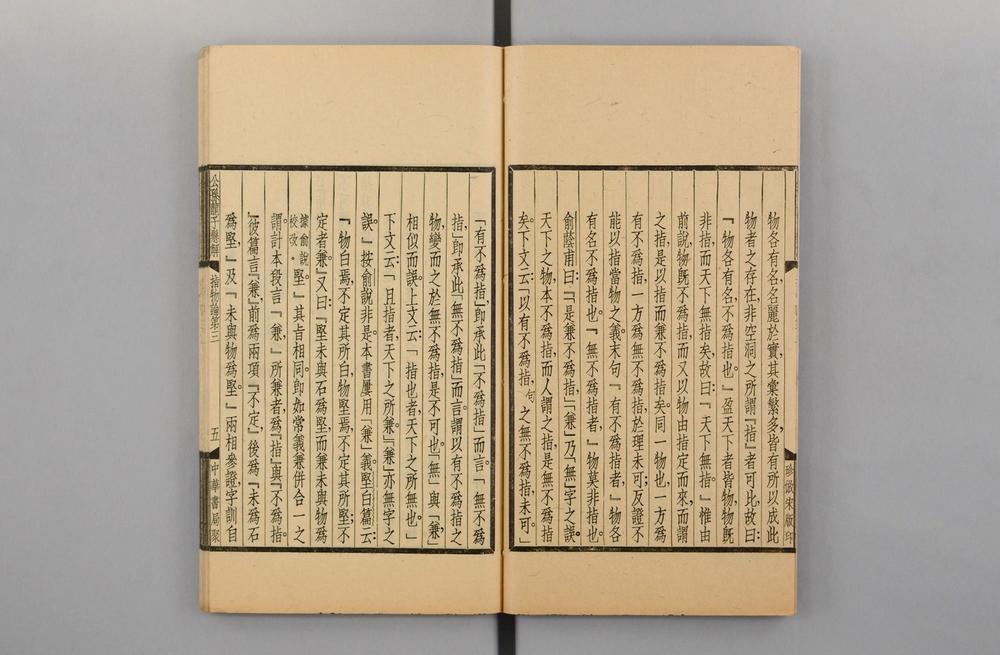 物各有名名麗於實其彙繁多皆有所以成此
物者之存在非空洞之所謂『指』者可比故曰
『物各有名不爲指也』盈天下者皆物物旣
非指而天下無指矣故曰『天下無指』惟由
前說物旣不爲指而又以物由指定而來而謂
之指是以指而兼不爲指矣同一物也一方爲
有不爲指一方爲無不爲指於理未可反證不
能以指當物之義末句『有不爲指者』物各
有名不爲指也『無不爲指者』物莫非指也
俞蔭甫曰『是兼不爲指』『兼』乃『無』字之誤
天下之物本不爲指而人謂之指是無不爲指
矣下文云『以有不爲指句之無不爲指未可』
珍倣宋版印
『有不爲指』卽承此『不爲指』而言『無不爲
指』卽承此『無不爲指』而言謂以有不爲指之
物變而之於無不爲指是不可也『無』與『兼』
相似而誤上文云『指也者天下之所無也』
下文云『且指者天下之所兼』『兼』亦無字之
誤』按俞說非是本書屢用『兼』義堅白篇云
『物白焉不定其所白物堅焉不定其所堅不
定者兼』又曰『堅未與石爲堅而兼未與物爲
據俞說校改。堅』其旨相同卽如常義兼併合一之
謂計本段言『兼』所兼者爲『指』與『不爲指』
彼篇言『兼』前爲兩項『不定』後爲『未爲石
爲堅』及『未與物爲堅』兩相參證字訓自
公孫龍子懸解
指物論第三
五
中華書局聚